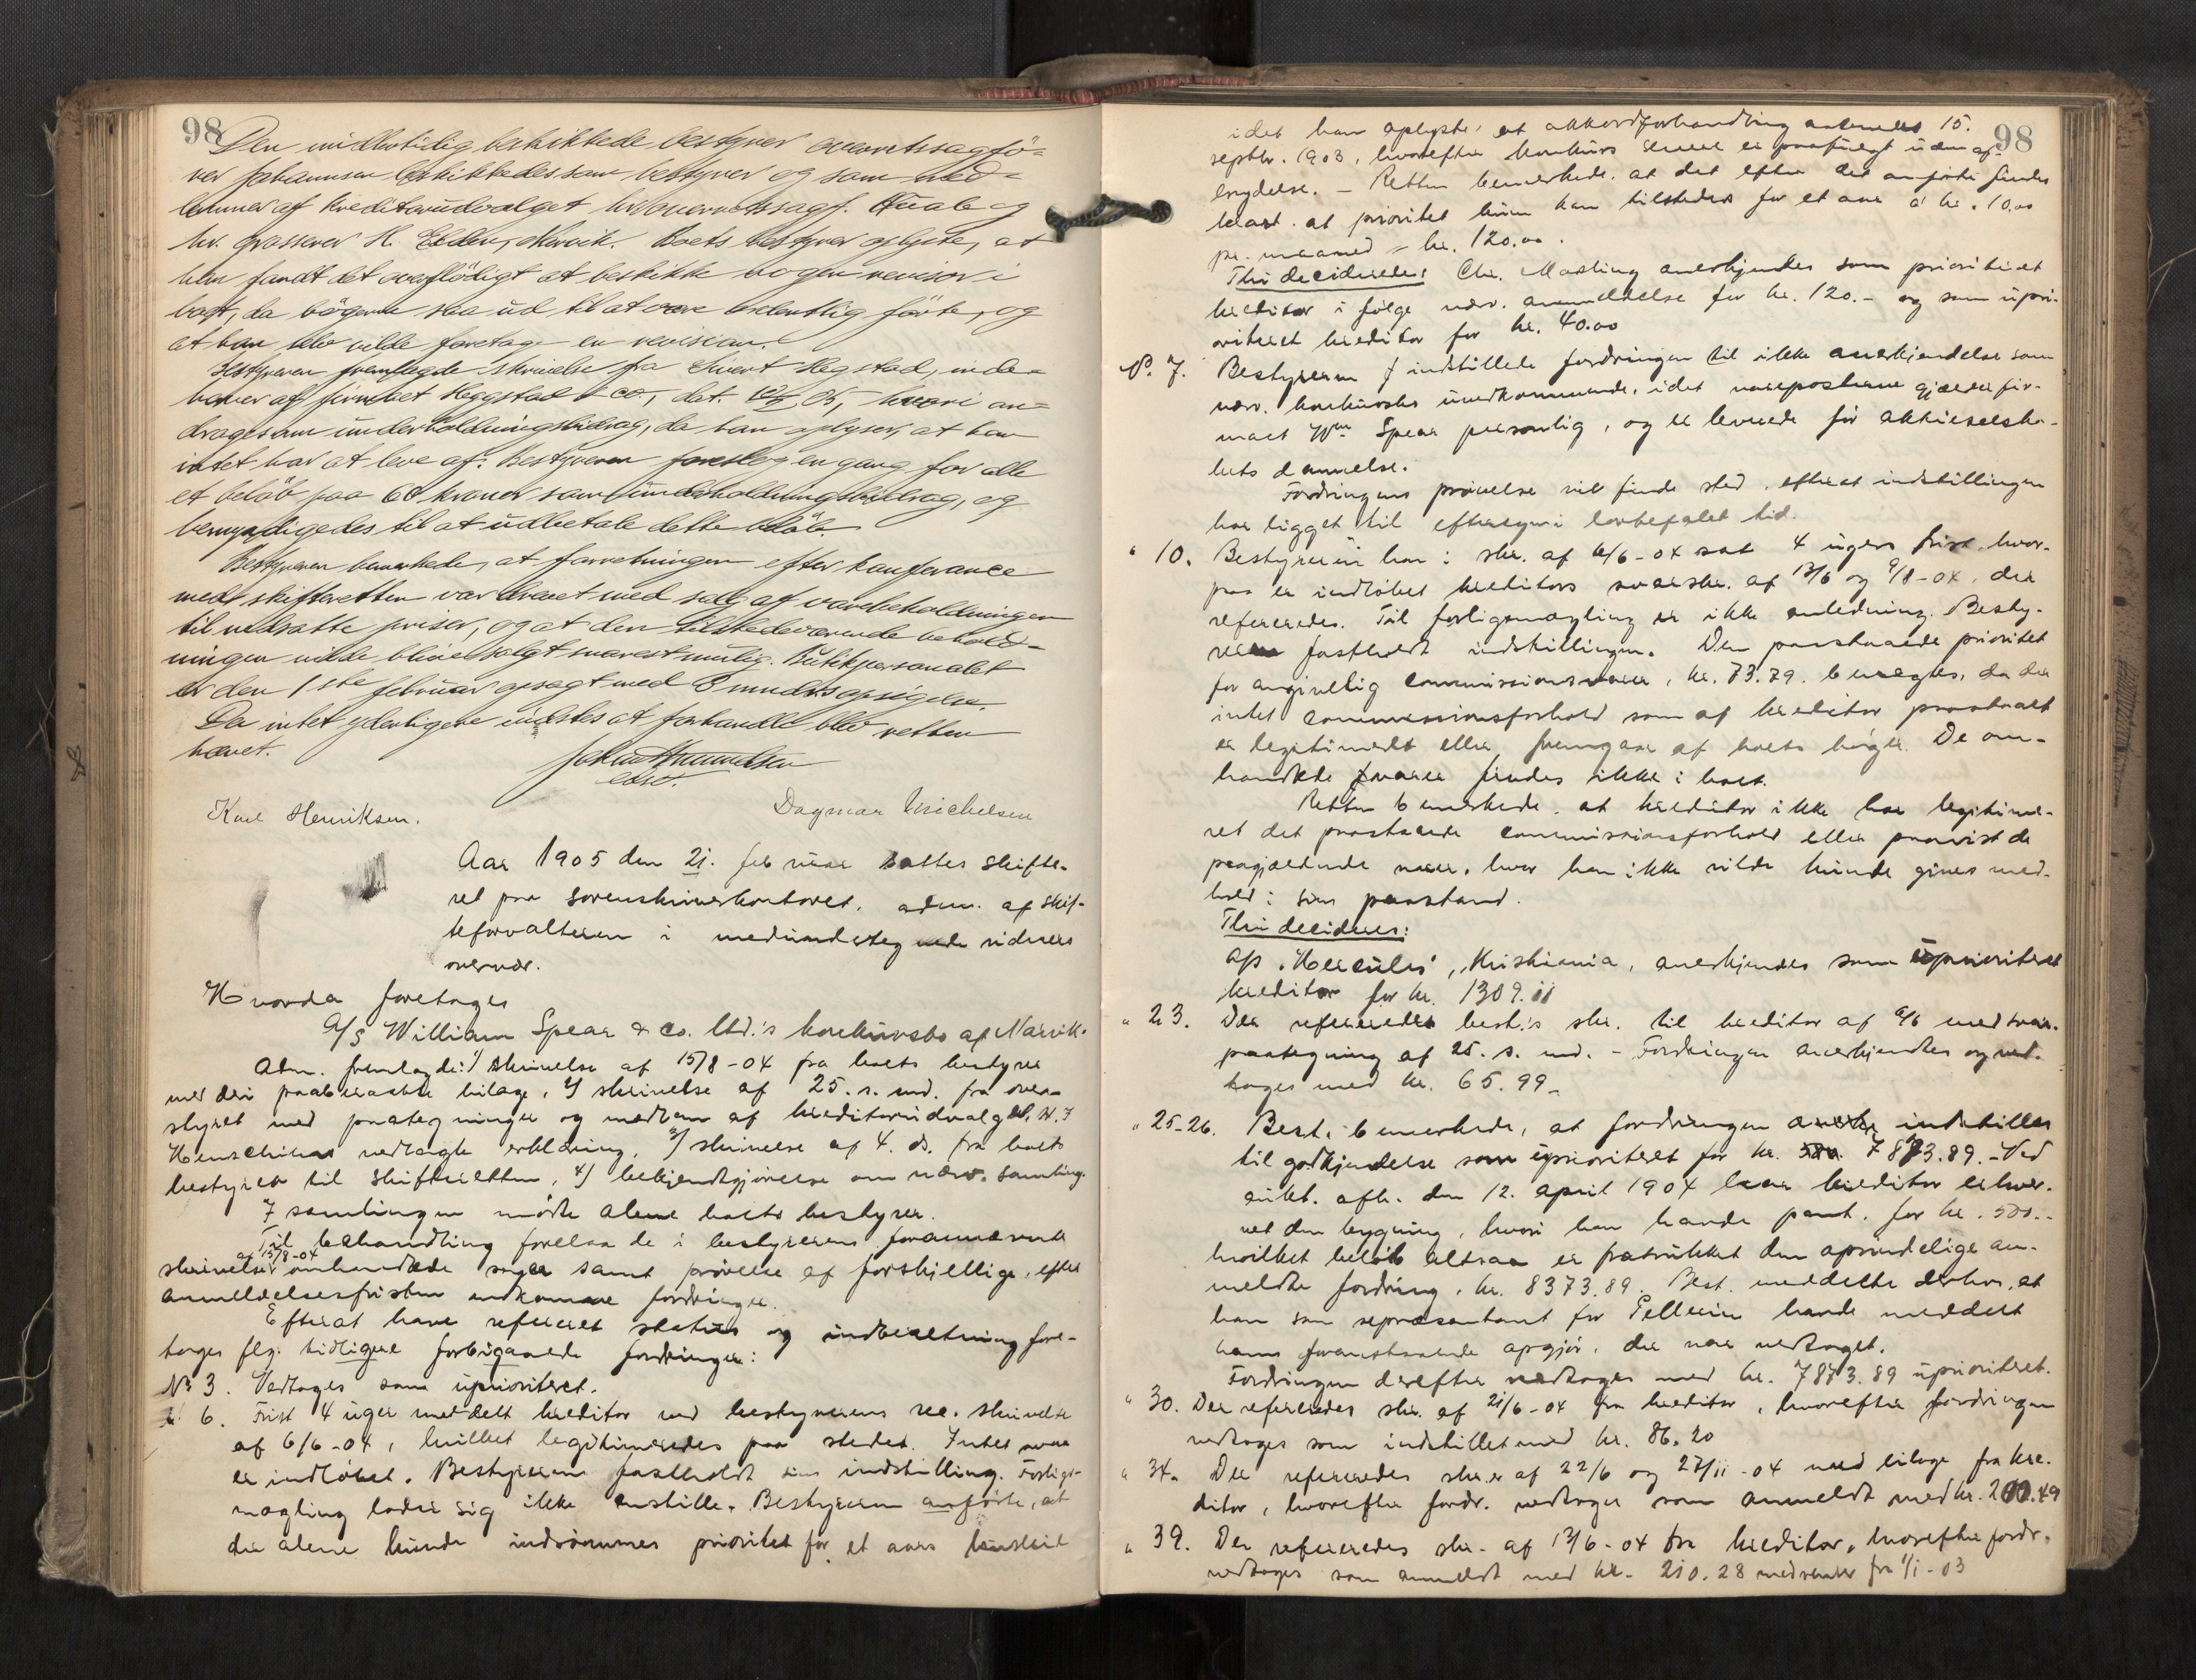 98
Den midlertidig beskikkede bestyrer overretssagfö=
rer Johannsen beskikkedes som bestyrer og som med=
lemmer af kreditorudvalget hr. overretssagf. Hualo og
hr. grosserer H. Elden, Narvik. Boets bestyrer oplyste, at
han fandt det overflödigt at beskikke nogen revisor i
boet, da bögerne saa ud til at være ordentlig förte, og
at han selv vilde foretage en revision.
Bestyreren fremlagde skrivelse fra Sivert Hegstad, inde=
haver af firmaet Heggstad & co., dat. 05, hvori an=
drages om underholdningsbidrag, da han oplyser, at han
intet har at leve af. Bestyreren foreslog en gang for alle
et belöb paa 60 kroner som underholdningsbidrag, og
bemyndigedes til at udbetale dette belöb.
Bestyreren bemerkede, at forretningen efter konferance
med skifteretten var drevet med salg af varebeholdningen
til nedsatte priser, og at den tilstedeværende behold=
ningen vilde blive solgt snarest mulig. Butikpersonalet
er den 1ste februar opsagt med 3 mndrs opsigelse.
Da intet yderligere indstes at forhandle blev retten
hævet.
Karl Henriksen. Dagmar Michelsen
Aar 1905 den 21. februar sattes skifte-
ret paa sorenskriverkontoret, adm. af skif-
teforvalteren i medundertegnede vidners
overvær.
Hvorda foretages
A/S William Spear & Co. Ltd.'s konkursbo af Narvik.
Adm. fremlagde: 1/ skrivelse af 15/8-04 fra boets bestyrer
med deri paaberaabte bilage, 2/ skrivelse af 25. s. md. fra oven-
styret med paategninger og medlem af kreditorudvalget, H. J
Henschiens vedlagte erklæring, 3/ skrivelse af 4. ds. fra boets
bestyrer til skifteretten, 4/ bekjendtgjørelse om nærv. samling.
I samlingen mødte alene boets bestyrer.
Til behandling forelaa de i bestyrerens forannævnte
skrivelse af 15/8-04 omhandlede sager samt prøvelse af forskjellige, efter
anmeldelsesfristen indkomne fordringer.
Efterat have refereret status og indberetning fore-
toges flg. tidligere forbigaaede fordringer:
No 3. Vedtoges som uprioriteret.
" 6. Frist 4 uger meddelt kreditor ved bestyrerens rec. skrivelse
af 6/6-04, hvilket legitimeredes paa stedet. Intet svar
er indløbet. Bestyreren fastholdt sin indstilling. Forligs-
mægling loder sig ikke anstille. Bestyreren anførte, at
der alene kunde indrømmes prioritet for et aars husleie
98
idet han oplyste, at akkordforhandling aabnedes 15.
septbr. 1903, hvorefter konkurs senere er paafulgt uden af-
brydelse. - Retten bemerkede, at det efter det anførte findes
klart, at prioritet kun kan tilstedes for et aar à kr. 10.00
pr. maaned = kr. 120.00.
Thi decideredes: Chr. Madling anerkjendes som prioriteret
kreditor i følge nærv. anmeldelse for kr. 120.- og som upri-
oriteret kreditor for kr. 40.00
No. 7. Bestyreren indstillede fordringen til ikke anerkjendelse som
nærv. konkursbo uvedkommende, idet vareposterne gjælder fir-
maet Wm Spear personlig, og er leverede før aktieselska-
bets dannelse.
Fordringens prøvelse vil finde sted, efterat indstillingen
har ligget til eftersyn i lovbefalet tid.
" 10. Bestyreren har i skr. af 6/6-04 sat 4 ugers frist, hvor-
paa er indløbet kreditors svarskr. af 13/6 og 9/8-04, der
refereredes. Til forligsmægling er ikke anledning. Besty-
reren fastholdt indstillingen. Den paastaaede prioritet
for angivelig commissionsvarer, kr. 73.79. benegtes, da der
intet commissionsforhold som af kreditor paastaaet
er legitimeret eller fremgaar af boets bøger. De om-
handlede varer findes ikke i boet.
Retten bemerkede, at kreditor ikke har legitime-
ret det paastaaede commissionsforhold eller paavist de
paagjældende varer, hvor han ikke vilde kunde gives med-
hold i sin paastand.
Thi decideres:
A/S "Hercules", Kristiania, anerkjendes som uprioriteret
kreditor for kr. 1309.11
" 23. Der refereredes best.'s skr. til kreditor af 6/6 med svar-
paategning af 25. s. md. - Fordringen anerkjendtes og ved-
toges med kr. 65.99.
" 25-26. Best. bemerkede, at fordringen indstilles
til godkjendelse som uprioriteret for kr. 7873.89. - Ved
aukt. afh. den 12. april 1904 har kreditor erhver-
vet den bygning, hvori han havde pant, for kr. 500.-
hvilket beløb altsaa er fratrukket den oprindelige an-
meldte fordring, kr. 8373.89. Best. meddelte derhos, at
han som repræsentant for Pellerin havde meddelt
hans foranstaaende opgjør, der var vedtaget.
Fordringen derefter vedtoges med kr. 7873.89 uprioriteret.
" 30. Der refereredes skr. af 21/6-04 fra kreditor, hvorefter fordringen
vedtoges som indstillet med kr. 86.20
" 34. Der refereredes skr.er af 22/6 og 27/11-04 med bilage fra kre-
ditor, hvorefter fordr. vedtoges som anmeldt med kr. 200.49
" 39. Der refereredes skr. af 13/6-04 fra kreditor, hvorefter fordr.
vedtoges som anmeldt med kr. 210.28 med renter fra 1/1-03